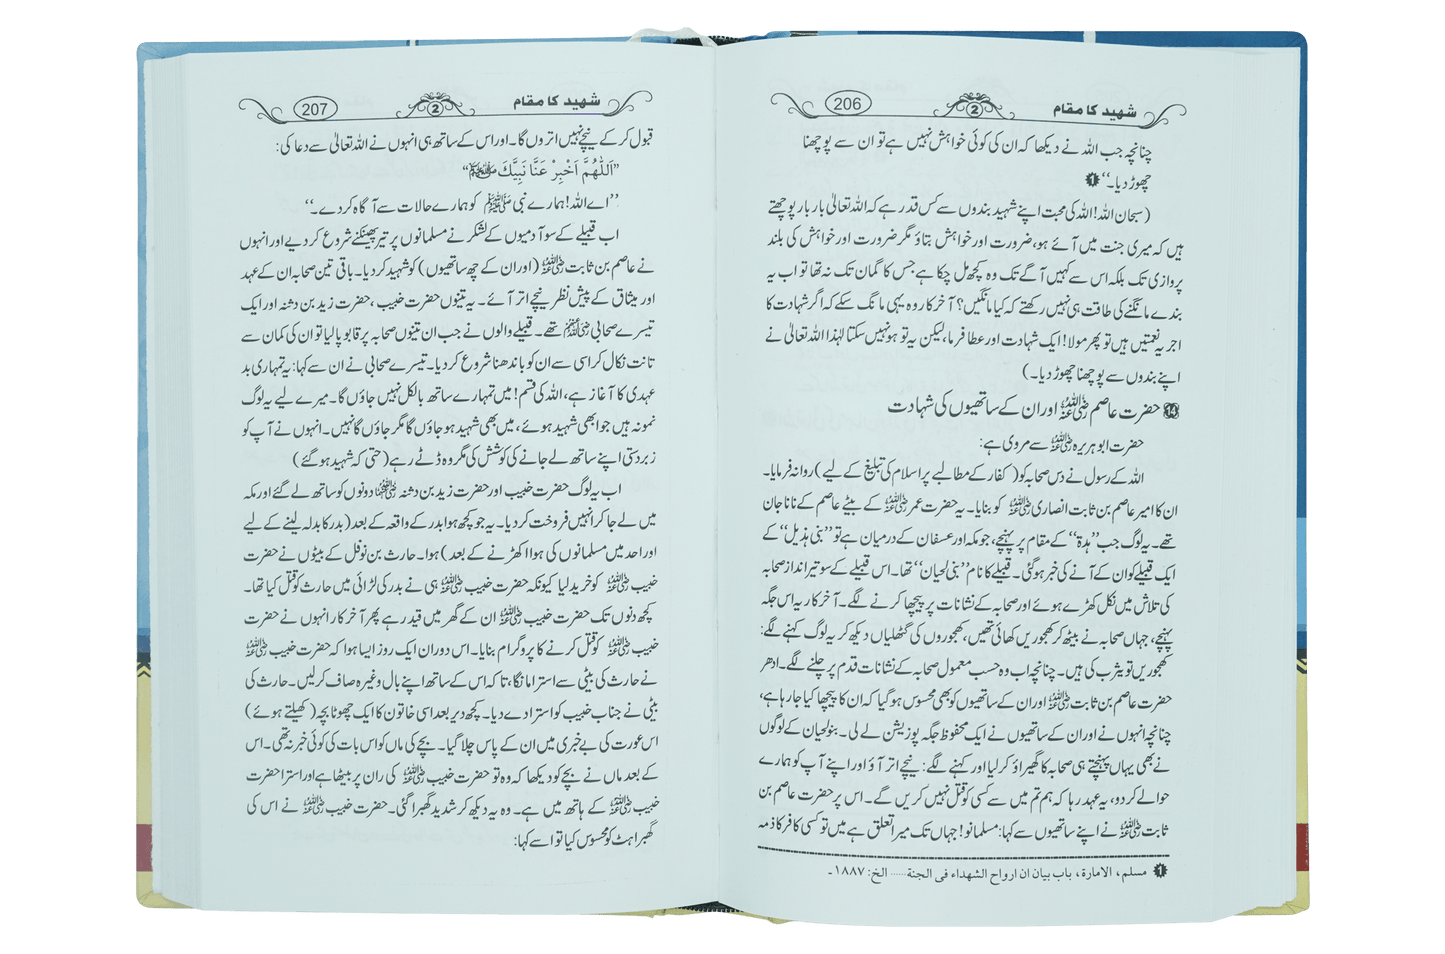 شہید کا مقام 2 206
چنانچہ جب اللہ نے دیکھا کہ ان کی کوئی خواہش نہیں ہے تو ان سے پوچھنا
چھوڑ دیا۔“ 1
(سبحان اللہ! اللہ کی محبت اپنے شہید بندوں سے کس قدر ہے کہ اللہ تعالیٰ بار بار پوچھتے
ہیں کہ میری جنت میں آئے ہو، ضرورت اور خواہش بتاؤ مگر ضرورت اور خواہش کی بلند
پروازی تک بلکہ اس سے کہیں آگے تک وہ کچھ مل چکا ہے جس کا گمان تک نہ تھا تو اب یہ
بندے مانگنے کی طاقت ہی نہیں رکھتے کہ کیا مانگیں؟ آخر کار وہ یہی مانگ سکے کہ اگر شہادت کا
اجر یہ نعمتیں ہیں تو پھر مولا! ایک شہادت اور عطا فرما، لیکن یہ تو ہو نہیں سکتا لہٰذا اللہ تعالیٰ نے
اپنے بندوں سے پوچھنا چھوڑ دیا۔)
14 حضرت عاصم رضی اللہ عنہ اور ان کے ساتھیوں کی شہادت
حضرت ابوہریرہ رضی اللہ عنہ سے مروی ہے:
اللہ کے رسول نے دس صحابہ کو (کفار کے مطالبے پر اسلام کی تبلیغ کے لیے) روانہ فرمایا۔
ان کا امیر عاصم بن ثابت انصاری رضی اللہ عنہ کو بنایا۔ یہ حضرت عمر رضی اللہ عنہ کے بیٹے عاصم کے نانا جان
تھے۔ یہ لوگ جب ”ہدۃ“ کے مقام پر پہنچے، جو مکہ اور عسفان کے درمیان ہے تو ”بنی ہذیل“ کے
ایک قبیلے کو ان کے آنے کی خبر ہو گئی۔ قبیلے کا نام ”بنی لحیان“ تھا۔ اس قبیلے کے سو تیر انداز صحابہ
کی تلاش میں نکل کھڑے ہوئے اور صحابہ کے نشانات پر پیچھا کرنے لگے۔ آخر کار یہ اس جگہ
پہنچے، جہاں صحابہ نے بیٹھ کر کھجوریں کھائی تھیں، کھجوروں کی گٹھلیاں دیکھ کر یہ لوگ کہنے لگے:
کھجوریں تو یثرب کی ہیں۔ چنانچہ اب وہ حسب معمول صحابہ کے نشانات قدم پر چلنے لگے۔ ادھر
حضرت عاصم بن ثابت رضی اللہ عنہ اور ان کے ساتھیوں کو بھی محسوس ہو گیا کہ ان کا پیچھا کیا جا رہا ہے،
چنانچہ انہوں نے اور ان کے ساتھیوں نے ایک محفوظ جگہ پوزیشن لے لی۔ بنو لحیان کے لوگوں
نے بھی یہاں پہنچتے ہی صحابہ کا گھیراؤ کر لیا اور کہنے لگے: نیچے اتر آؤ اور اپنے آپ کو ہمارے
حوالے کر دو، یہ عہد رہا کہ ہم تم میں سے کسی کو قتل نہیں کریں گے۔ اس پر حضرت عاصم بن
ثابت رضی اللہ عنہ نے اپنے ساتھیوں سے کہا: مسلمانو! جہاں تک میرا تعلق ہے میں تو کسی کافر کا ذمہ
1 مسلم، الامارۃ، باب بیان ان ارواح الشھداء فی الجنۃ...... الخ: ١٨٨٧۔
شہید کا مقام 2 207
قبول کر کے نیچے نہیں اتروں گا۔ اور اس کے ساتھ ہی انہوں نے اللہ تعالیٰ سے دعا کی:
”اَللّٰهُمَّ اَخْبِرْ عَنَّا نَبِيَّكَ ﷺ“
’’اے اللہ! ہمارے نبی ﷺ کو ہمارے حالات سے آگاہ کر دے۔‘‘
اب قبیلے کے سو آدمیوں کے لشکر نے مسلمانوں پر تیر پھینکنے شروع کر دیے اور انہوں
نے عاصم بن ثابت رضی اللہ عنہ (اور ان کے چھ ساتھیوں) کو شہید کر دیا۔ باقی تین صحابہ ان کے عہد
اور میثاق کے پیش نظر نیچے اتر آئے۔ یہ تینوں حضرت خبیب، حضرت زید بن دثنہ اور ایک
تیسرے صحابی رضی اللہ عنہم تھے۔ قبیلے والوں نے جب ان تینوں صحابہ پر قابو پا لیا تو ان کی کمان سے
تانت نکال کر اسی سے ان کو باندھنا شروع کر دیا۔ تیسرے صحابی نے ان سے کہا: یہ تمہاری بد
عہدی کا آغاز ہے، اللہ کی قسم! میں تمہارے ساتھ بالکل نہیں جاؤں گا۔ میرے لیے یہ لوگ
نمونہ ہیں جو ابھی شہید ہوئے، میں بھی شہید ہو جاؤں گا مگر جاؤں گا نہیں۔ انہوں نے آپ کو
زبردستی اپنے ساتھ لے جانے کی کوشش کی مگر وہ ڈٹے رہے (حتی کہ شہید ہو گئے)
اب یہ لوگ حضرت خبیب اور حضرت زید بن دثنہ رضی اللہ عنہما دونوں کو ساتھ لے گئے اور مکہ
میں لے جا کر انہیں فروخت کر دیا۔ یہ جو کچھ ہوا بدر کے واقعہ کے بعد (بدر کا بدلہ لینے کے لیے
اور احد میں مسلمانوں کی ہوا اکھڑنے کے بعد) ہوا۔ حارث بن نوفل کے بیٹوں نے حضرت
خبیب رضی اللہ عنہ کو خرید لیا کیونکہ حضرت خبیب رضی اللہ عنہ ہی نے بدر کی لڑائی میں حارث کو قتل کیا تھا۔
کچھ دنوں تک حضرت خبیب رضی اللہ عنہ ان کے گھر میں قید رہے پھر آخر کار انہوں نے حضرت
خبیب رضی اللہ عنہ کو قتل کرنے کا پروگرام بنایا۔ اس دوران ایک روز ایسا ہوا کہ حضرت خبیب رضی اللہ عنہ
نے حارث کی بیٹی سے استرا مانگا، تاکہ اس کے ساتھ اپنے بال وغیرہ صاف کر لیں۔ حارث کی
بیٹی نے جناب خبیب کو استرا دے دیا۔ کچھ دیر بعد اسی خاتون کا ایک چھوٹا بچہ (کھیلتے ہوئے)
اس عورت کی بے خبری میں ان کے پاس چلا گیا۔ بچے کی ماں کو اس بات کی کوئی خبر نہ تھی۔ اس
کے بعد ماں نے بچے کو دیکھا کہ وہ تو حضرت خبیب رضی اللہ عنہ کی ران پر بیٹھا ہے اور استرا حضرت
خبیب رضی اللہ عنہ کے ہاتھ میں ہے۔ وہ یہ دیکھ کر شدید گھبرا گئی۔ حضرت خبیب رضی اللہ عنہ نے اس کی
گھبراہٹ کو محسوس کیا تو اسے کہا: